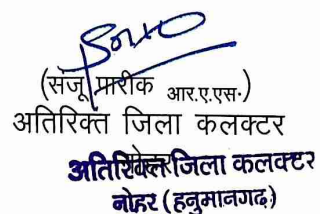 (संजू पारीक आर.ए.एस.)
अतिरिक्त जिला कलक्टर
अतिरिक्त जिला कलक्टर
नोहर (हनुमानगढ़)